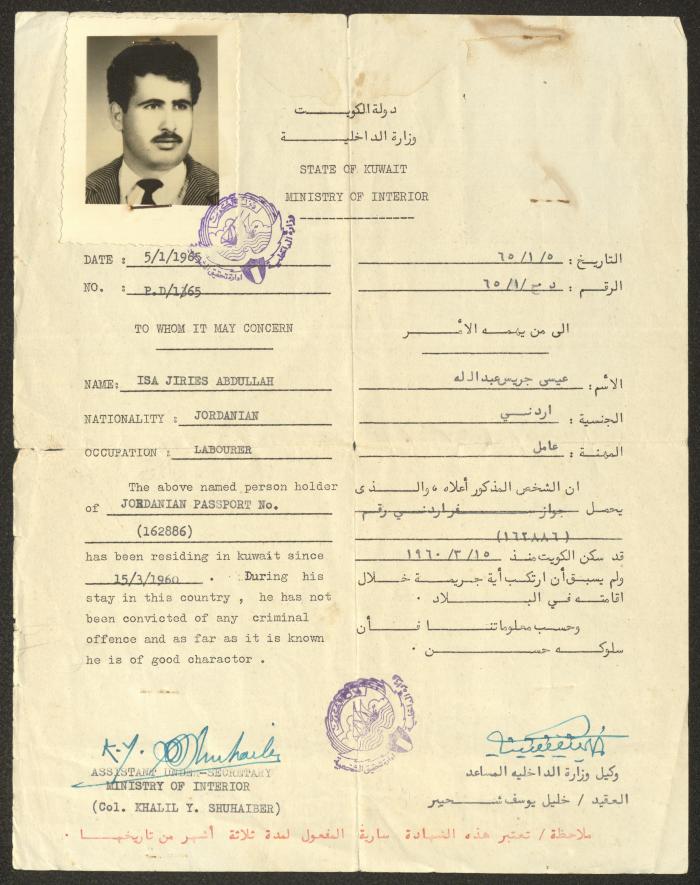 دولة الكويت
وزارة الداخلية
STATE OF KUWAIT
MINISTRY OF INTERIOR
DATE : 5/1/1965
NO. : P.D/1/65
TO WHOM IT MAY CONCERN
NAME: ISA JIRIES ABDULLAH
NATIONALITY : JORDANIAN
OCCUPATION : LABOURER
The above named person holder
of JORDANIAN PASSPORT No.
(162886)
has been residing in kuwait since
15/3/1960 . During his
stay in this country , he has not
been convicted of any criminal
offence and as far as it is known
he is of good charactor .
K.Y. Shuhaiber
ASSISTANT UNDER-SECRETARY
MINISTRY OF INTERIOR
(Col. KHALIL Y. SHUHAIBER)
التاريخ : ٦٥/١/٥
الرقم : د مح /٦٥/١
الى من يهمه الأمر
الأسم : عيسى جريس عبدالله
الجنسية : اردني
المهنة : عامل
ان الشخص المذكور أعلاه ، والذى
يحمل جواز سفر اردني رقم
(١٦٢٨٨٦)
قد سكن الكويت منذ ١٩٦٠/٣/١٥
ولم يسبق أن ارتكب أية جريمة خلال
اقامته في البلاد .
وحسب معلوماتنا فأن
سلوكه حسن .
وكيل وزارة الداخليه المساعد
العقيد / خليل يوسف شحيبر
ملاحظة / تعتبر هذه الشهادة سارية المفعول لمدة ثلاثة أشهر من تاريخها .